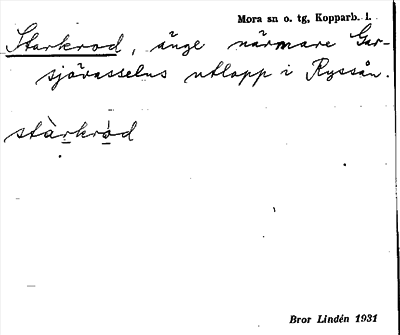 Mora sn o. tg, Kopparb. l.
Starkrod, änge närmare Gar-
sjövasselns utlopp i Ryssån.
stàrkròd
Bror Lindén 1931